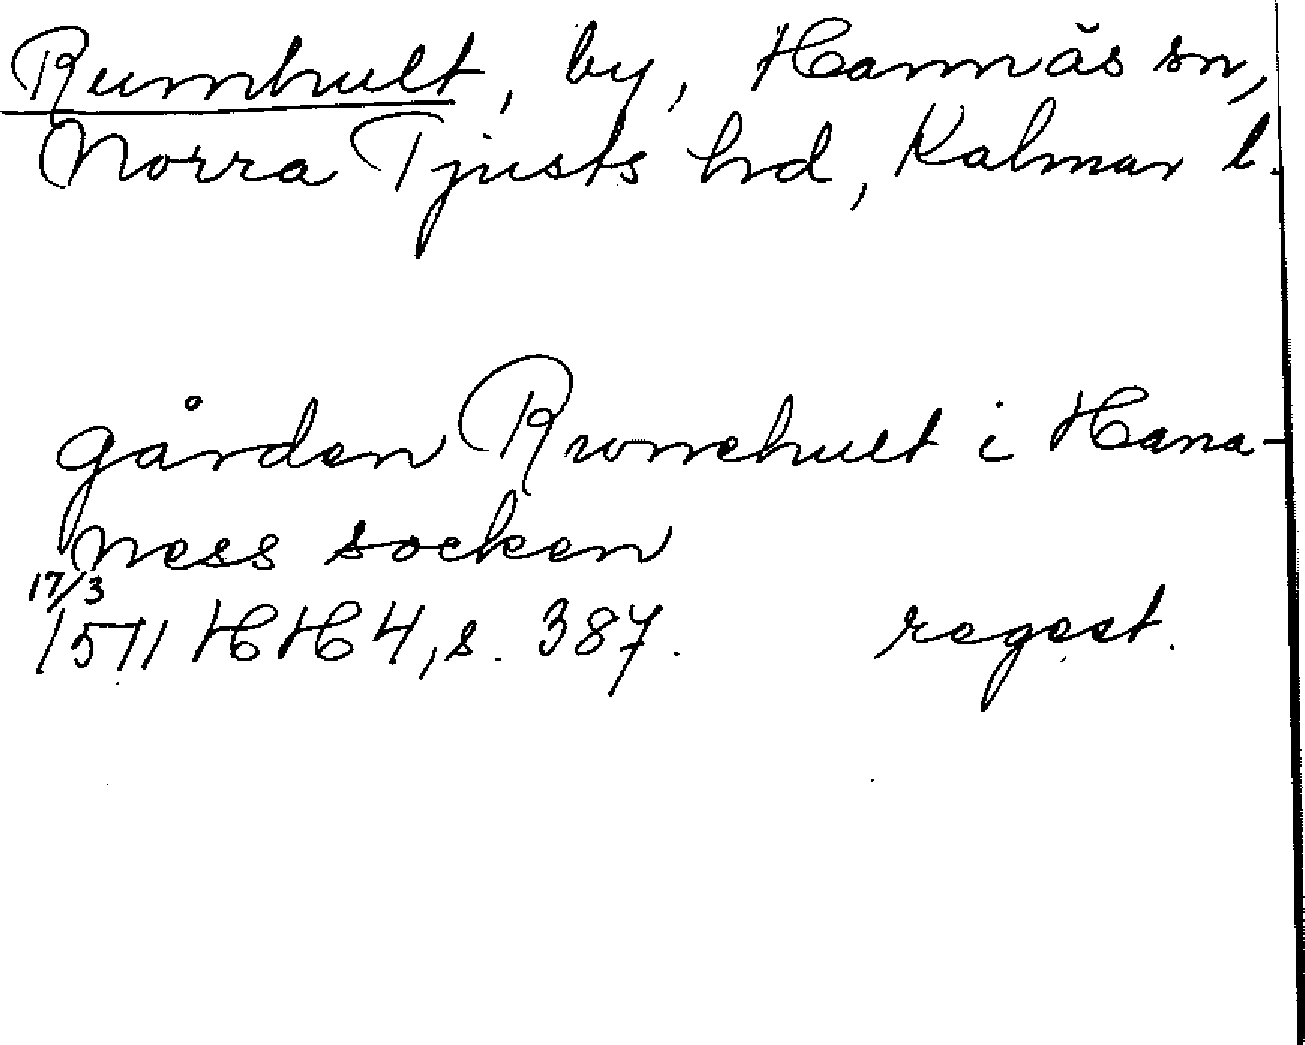 Rumhult, by, Hannäs sn,
Norra Tjusts hd, Kalmar l.
gården Rwmehult i Hana-
ness socken
17/3
1511 HH 4, s. 387. regest.